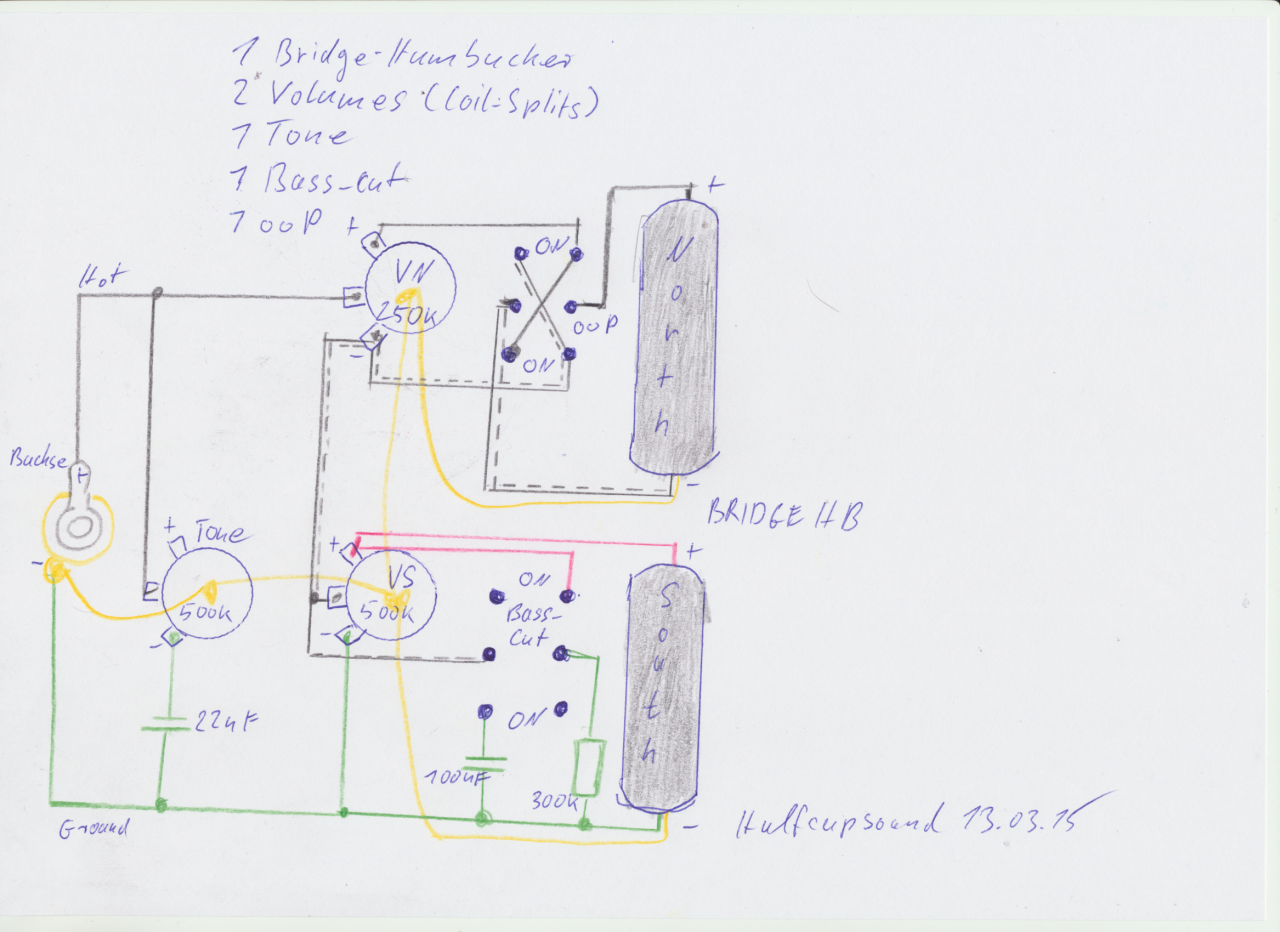 1 Bridge-Humbucker
2 Volumes (Coil-Splits)
1 Tone
1 Bass-cut
1 OOP
+
+
ON
VN
250K
OOP
-
ON
Hot
North
-
BRIDGE HB
Buchse
+
-
+
Tone
500K
-
+
VS
500K
-
ON
Bass-
Cut
ON
+
South
-
22nF
100nF
300K
Ground
Halfcupsound 13.03.15